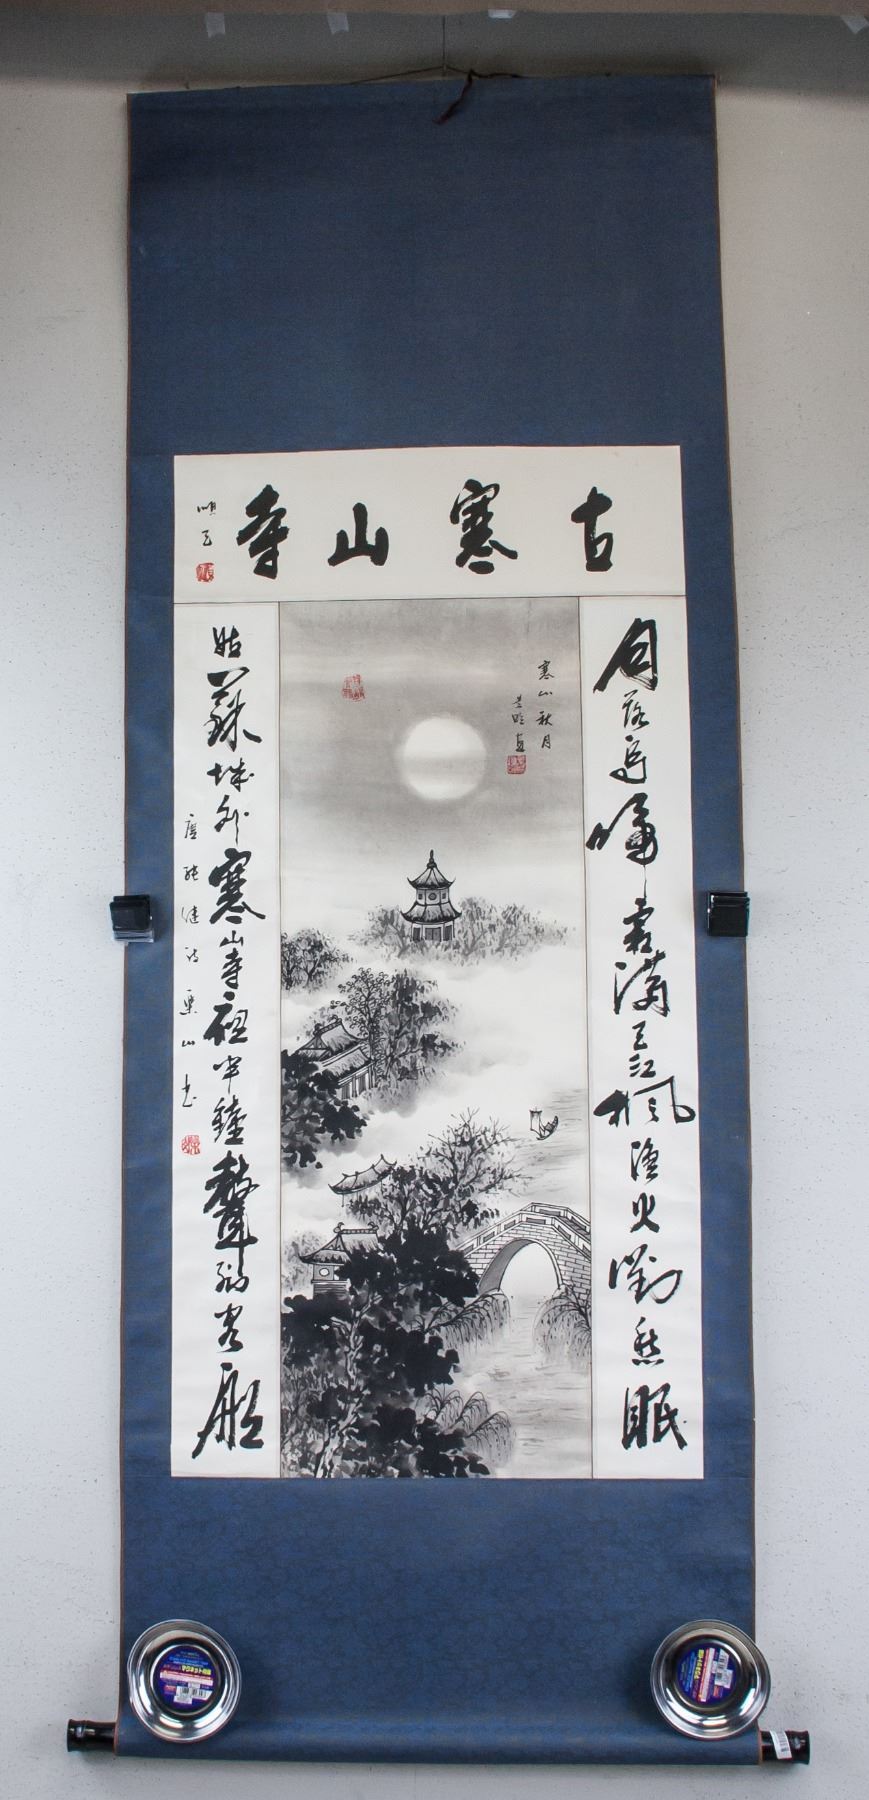 古寒山寺
月落烏啼霜滿天江楓漁火對愁眠
寒山秋月
姑蘇城外寒山寺夜半鐘聲到客船
唐張继诗樂山书